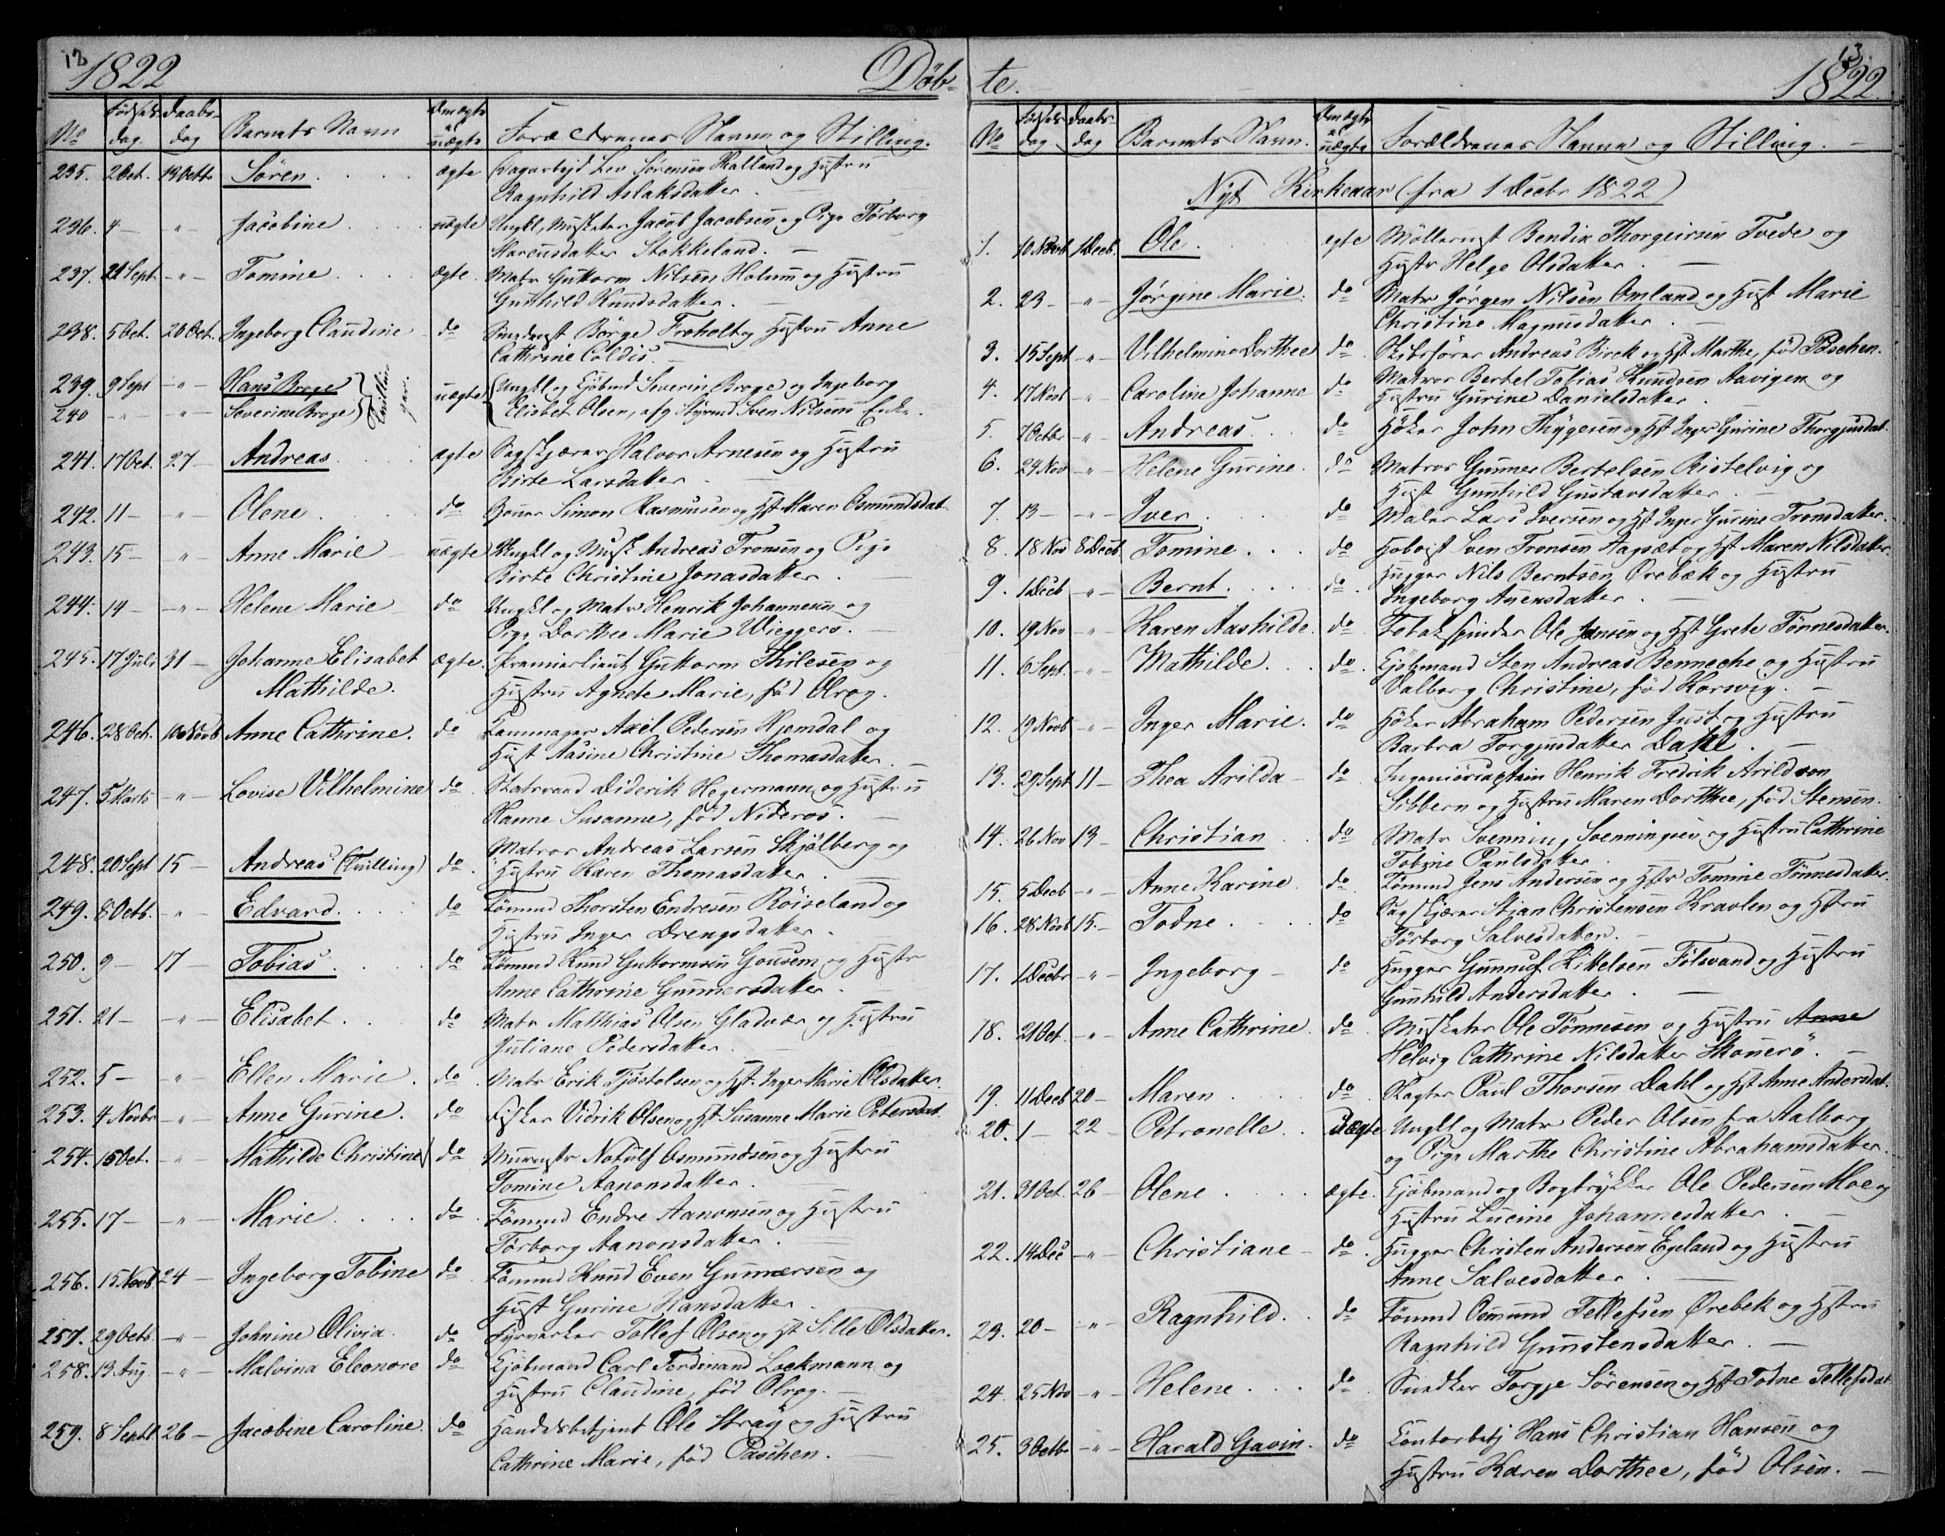 12
1822
Døb-
No
Fødsels dag
Daabs dag
Barnets Navn
Om ægte el uægte
Forældrenes Navne og Stilling.
235. 2 Oct. 13 Octb Søren ægte Dagarbejd Lev Sørensen Kalland og Hustru
Ragnhild Aslaksdatter.
236. 4 — " — Jacobine uægte Ungkl, Musketer Jacob Jacobsen og Pige Tørborg
Marcusdatter Stokkeland. —
237. 21 Sept. — " — Tomine ægte. Matr Guttorm Nilsen Holum og Hustru
Gunhild Knudsdatter. —
238. 5 Oct. 20 Oct. Ingeborg Claudine do Smedmst Børge Froholt og Hustru Anne
Cathrine Coldis. —
239. 9 Sept — " — Hans Broge } Tvillin
240 — " — " — Severine Broge } par. uægte { Ungkl og Kjøbmd Severin Broge og Ingeborg
Elisbet Olsen, afg Styrmd Sven Nilsens Enke.
241. 17 Oct. 27 — Andreas ægte Sagskjærer Halvor Arnesen og Hustru
Birte Larsdatter. —
242. 11 — " Olene. do Bonar Simon Rasmusen og Hst Maren Osmundsdat.
243. 15 — " Anne Marie uægte Ungkl og Musk Andreas Tronsen og Pige
Birte Christine Jonasdatter. —
244. 14 — " — Helene Marie do Ungkl og Matr Henrik Johannesen og
Pige Dorthea Marie Wiggers. —
245. 17 Juli 31 — Johanne Elisabet ægte. Premierlieut Guttorm Thilesen og
Mathilde. Hustru Agnete Marie, fød Olrog.
246. 28 Oct. 10 Novb Anne Cathrine. do Kammager Axel Pedersen Hjemdal og
Hust Aasine Christine Thomasdatter. —
247. 5 Marts " — Lovise Vilhelmine do. Statsraad Diderik Hegermann og Hustru
Hanne Susanne, fød Nideros. —
248. 20 Sept 15 — Andreas (Tvilling) do. Matros Andreas Larsen Skjølberg og
Hustru Karen Thomasdatter. —
249. 8 Octb. " — Edvard. do Tømmd Thorsten Endresen Røiseland og
Hustru Inger Drengsdatter. —
250. 9 — 17 — Tobias. do Tømmd Knud Guttormsen Gousem og Hustr
Anne Cathrine Gunnersdatter. —
251. 21 — " — Elisabet. do. Matr Matthias Olsen Gladvær og Hustru
Juliane Pedersdatter. —
252. 5 — " Ellen Marie. do. Matr Erik Tjøstelsen og Hst. Inger Marie Olsdatter.
253. 4 Novbr " — Anne Gurine. do Fisker Didrik Olsen og Hst Susanne Marie Petersdat.
254. 15 Oct. " — Mathilde Christine do Murmstr Notulf Osmundsen og Hustru
Tomine Aanonsdatter. —
255. 17 — " — Marie do. Tømmd Endre Aanonsen og Hustru
Tørborg Aanonsdatter. —
256. 15 Novb 24 — Ingeborg Tobine do Tømmd Knud Even Gunnersen og
Hust Gurine Hansdatter.
257. 29 Octb. " — Johnine Olivia. do Fyrværker Tollef Olsen og Hst Sille Olsdatter.
258. 13 Aug — " — Malvina Eleonore do Kjøbmand Carl Ferdinand Lockmann og
Hustru Claudine, fød Olrog. —
259. 8 Septb 26 — Jacobine Caroline. do Handelsbetjent Ole Stray og Hustru
Cathrine Marie, fød Paschen. —
13
te.
1822
No
Fødsels dag
Daabs dag
Barnets Navn.
Om ægte el uægte
Forældrenes Navne og Stilling. —
Nyt Kirkeaar (fra 1 Decbr 1822)
1. 10 Novb 1 Decb. Ole. egte Møllermst Bendix Thorgeirsen Tvede og
Hustr Helge Olsdatter. —
2. 23 — " — Jørgine Marie. do Matr Jørgen Nilsen Omland og Hust Marie
Christine Magnusdatter. —
3. 15 Sept " — Vilhelmine Dorthee do Skibsfører Andreas Birck og Hst Marthe, fød Paschen.
4. 17 Novb " — Caroline Johanne do Matros Bertel Tobias Knudsen Aavigen og
Hustru Gurine Danielsdatter. —
5. 7 Octbr " — Andreas. do Høker John Thygesen og Hst Inger Gurine Thorgjusdat.
6. 24 Nov " — Helene Gurine. do Matros Gunner Bertelsen Ristelvig og
Hust Gunhild Gustavsdatter. —
7. 13 — " — Iver. do Maler Lars Iversen og Hst Inger Gurine Tronsdatter.
8. 18 Nov 8 Decb Tomine. do Hoboist Sven Tronsen Aagsæt og Hst Maren Nilsdatter.
9. 1 Decb — " — Bernt. do. Hugger Nils Berntsen Ørebæk og Hustru
Ingeborg Auensdatter. —
10. 19 Nov — " — Karen Aashilde. do. Tobakspinder Ole Jensen og Hst Grete Tønnesdatter.
11. 6 Sept. — " — Mathilde. do. Kjøbmand Sten Andreas Benneche og Hustru
Valborg Christine, fød Korsvig. —
12. 19 Novb " — Inger Marie. do Høker Abraham Pedersen Just og Hustru
Barbra Torgjusdatter Dahl. —
13. 29 Sept 11 — Thea Arilda — do Ingeniørcaptain Henrik Fredrik Arildsen
Sibbern og Hustru Maren Dorthee, fød Stensen.
14. 26 Nov 13 — Christian do Matr Svenning Svenningsen og Hustru Cathrine
Tobine Paulsdatter. —
15. 5 Decb — " — Anne Karine. do Tømmd Jens Andersen og Hstr Tomine Tønnesdatter.
16. 28 Novb 15. — Todne. do Sagskjærer Stian Christensen Kravlen og Hstru
Tørborg Salvesdatter. —
17. 1 Decbr — " — Ingeborg — do Hugger Gunnuf Kittelsen Følsvand og Hustru
Gunhild Andersdatter. —
18. 21 Oct. — " — Anne Cathrine. do. Musketer Ole Tønnesen og Hustru Anne
Helvig Cathrine Nilsdatter Skouerø. —
19. 11 Decb 20 — Maren do Bagter Paul Thorsen Dahl og Hst Anne Andersdat.
20. 1 — 22 — Petronelle. uægte Ungkl og Matr Peder Olsen fra Aalborg
og Pige Marthe Christine Abrahamsdatter.
21. 31 Oct. 26 — Olene ægte. Kjøbmand og Bogtrykker Ole Pedersen Moe og
Hustru Lucine Johannesdatter. —
22. 14 Dec — " — Christiane — do. Hugger Christen Andersen Egeland og Hustru
Anne Salvesdatter. —
23. 20 — " — Ragnhild. do Tømmd Osmund Tellefsen Ørebek og Hstru
Ragnhild Gunstensdatter. —
24. 25 Nov — " — Helene. do. Snedker Torgje Sørensen og Hst Todne Tellefsdat
25. 3 Octbr — " — Harald Gavin. do Contorbetj Hans Christian Hansen og
Hustru Karen Dorthee, fød Olsen. —